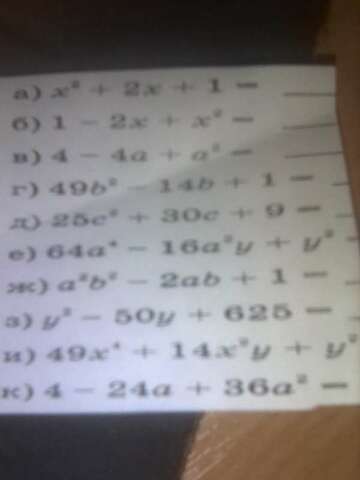 а) x² + 2x + 1 = ____
б) 1 − 2x + x² = ____
в) 4 − 4a + a² = ____
г) 49b² − 14b + 1 = _
д) 25c² + 30c + 9 = _
е) 64a⁴ − 16a²y + y²
ж) a²b² − 2ab + 1 = _
з) y² − 50y + 625 = _
и) 49x⁴ + 14x²y + y²
к) 4 − 24a + 36a² =